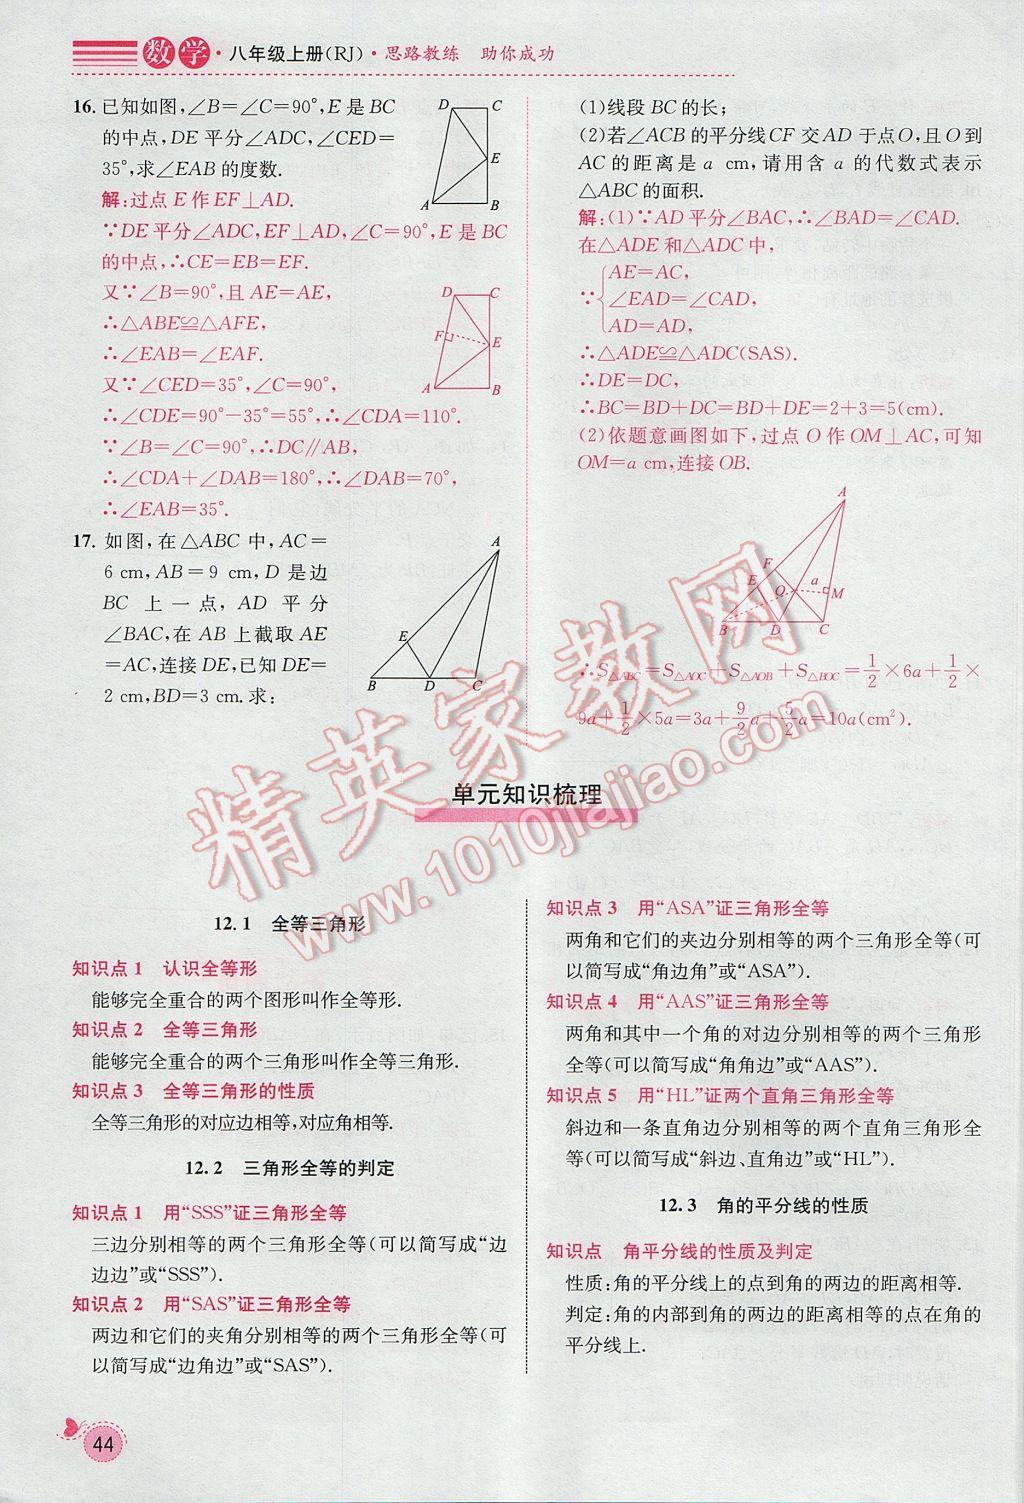 数学·八年级上册(RJ)·思路教练 助你成功
16. 已知如图,∠B=∠C=90°,E 是 BC
的中点,DE 平分∠ADC,∠CED=
35°,求∠EAB 的度数.
D C
E
A B
解:过点 E 作 EF⊥AD.
∵DE 平分∠ADC,EF⊥AD,∠C=90°,E 是 BC
的中点,∴CE=EB=EF.
又∵∠B=90°,且 AE=AE,
∴△ABE≌△AFE,
∴∠EAB=∠EAF.
又∵∠CED=35°,∠C=90°,
D C
F E
A B
∴∠CDE=90°-35°=55°,∴∠CDA=110°.
∵∠B=∠C=90°,∴DC∥AB,
∴∠CDA+∠DAB=180°,∴∠DAB=70°,
∴∠EAB=35°.
17. 如图,在△ABC 中,AC=
6 cm,AB=9 cm,D 是边
BC 上一点,AD 平分
∠BAC,在 AB 上截取 AE
=AC,连接 DE,已知 DE=
2 cm,BD=3 cm.求:
A
E
B D C
(1)线段 BC 的长;
(2)若∠ACB 的平分线 CF 交 AD 于点 O,且 O 到
AC 的距离是 a cm,请用含 a 的代数式表示
△ABC 的面积.
解:(1)∵AD 平分∠BAC,∴∠BAD=∠CAD.
在△ADE 和△ADC 中,
AE=AC,
∵{∠EAD=∠CAD,
AD=AD,
∴△ADE≌△ADC(SAS).
∴DE=DC,
∴BC=BD+DC=BD+DE=2+3=5(cm).
(2)依题意画图如下,过点 O 作 OM⊥AC,可知
OM=a cm,连接 OB.
A
F
E O a M
B D C
∴S△ABC=S△AOC+S△AOB+S△BOC=1/2×6a+1/2×
9a+1/2×5a=3a+9/2a+5/2a=10a(cm²).
精英家教网
www.1010jiajiao.com
单元知识梳理
12.1 全等三角形
知识点 1 认识全等形
能够完全重合的两个图形叫作全等形.
知识点 2 全等三角形
能够完全重合的两个三角形叫作全等三角形.
知识点 3 全等三角形的性质
全等三角形的对应边相等,对应角相等.
12.2 三角形全等的判定
知识点 1 用“SSS”证三角形全等
三边分别相等的两个三角形全等(可以简写成“边
边边”或“SSS”).
知识点 2 用“SAS”证三角形全等
两边和它们的夹角分别相等的两个三角形全等(可
以简写成“边角边”或“SAS”).
知识点 3 用“ASA”证三角形全等
两角和它们的夹边分别相等的两个三角形全等(可
以简写成“角边角”或“ASA”).
知识点 4 用“AAS”证三角形全等
两角和其中一个角的对边分别相等的两个三角形
全等(可以简写成“角角边”或“AAS”).
知识点 5 用“HL”证两个直角三角形全等
斜边和一条直角边分别相等的两个直角三角形全
等(可以简写成“斜边、直角边”或“HL”).
12.3 角的平分线的性质
知识点 角平分线的性质及判定
性质:角的平分线上的点到角的两边的距离相等.
判定:角的内部到角的两边的距离相等的点在角的
平分线上.
44